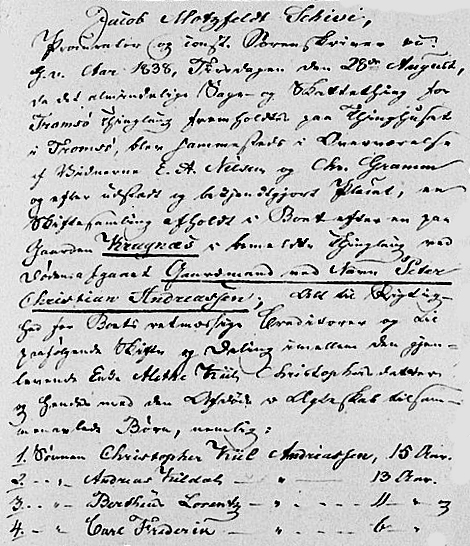 Jacob Motzfeldt Schive,
Procurator og const. Sorenskriver
Aar 1838, Tirsdagen den 28de August,
da det almindelige Sage- og Skattething for
Tromsø Thinglaug fremholdtes paa Thinghuset
i Tromsø, blev sammesteds i Overværelse
af Vidnerne E. A. Nilsen og Chr. Gramm
og efter udstedt og bekjendtgjort Placat, en
Skiftesamling afholdt i Boet efter en paa
Gaarden Kragnæs i bemeldte Thinglaug ved
Døden afgaaet Gaardmand ved Navn Peter
Christian Andreassen, Alt til Rigtig-
hed for Boets retmæssige Creditorer og til
paafølgende Skifte og Deling imellem den gjen-
levende Enke Christophersdatter
og hendes med den Afdøde i Ægteskab tilsam-
menavlede Børn, nemlig:
1. Sønnen Christopher Kiil Andreassen, 15 Aar.
2. " - " Andreas Kildal - " - 13 Aar.
3. " - " Berthius Lorentz - " - 11 - " og
4. " - " Carl Frederik - " - 6 - "